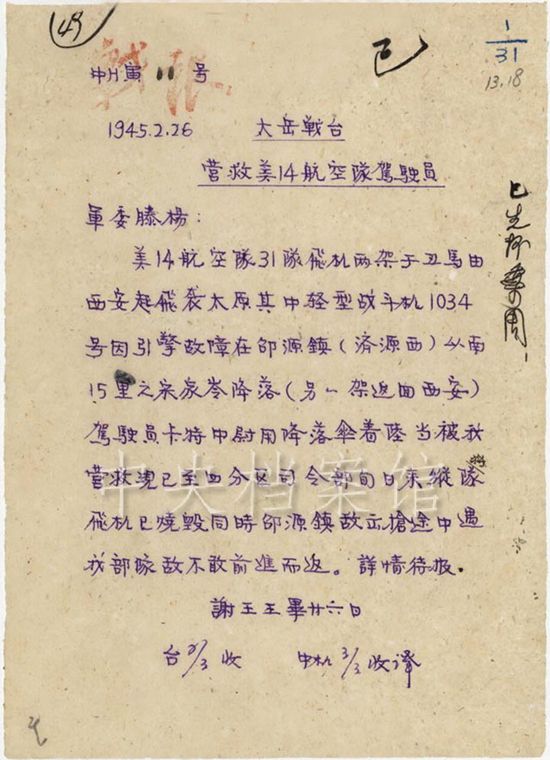 49
1
31
13.18
已
戰报
中11寅11号
1945.2.26 太岳戰台
营救美14航空隊駕駛員
軍委滕楊：
美14航空隊31隊飛机两架于丑馬由
西安起飛袭太原其中轻型战斗机1034
号因引擎故障在邵源鎮（済源西）以南
15里之宋家岺降落（另一架返回西安）
駕駛員卡特中尉用降落伞着陸当被我
营救現已至四分区司令部旬日来縱隊
飛机已燒毀同時邵源鎮敌出搶途中遇
我部隊敌不敢前進而返。詳情待报.
謝王王畢廿六日
台 /3 收 中机 3/3 收譯
中央档案馆